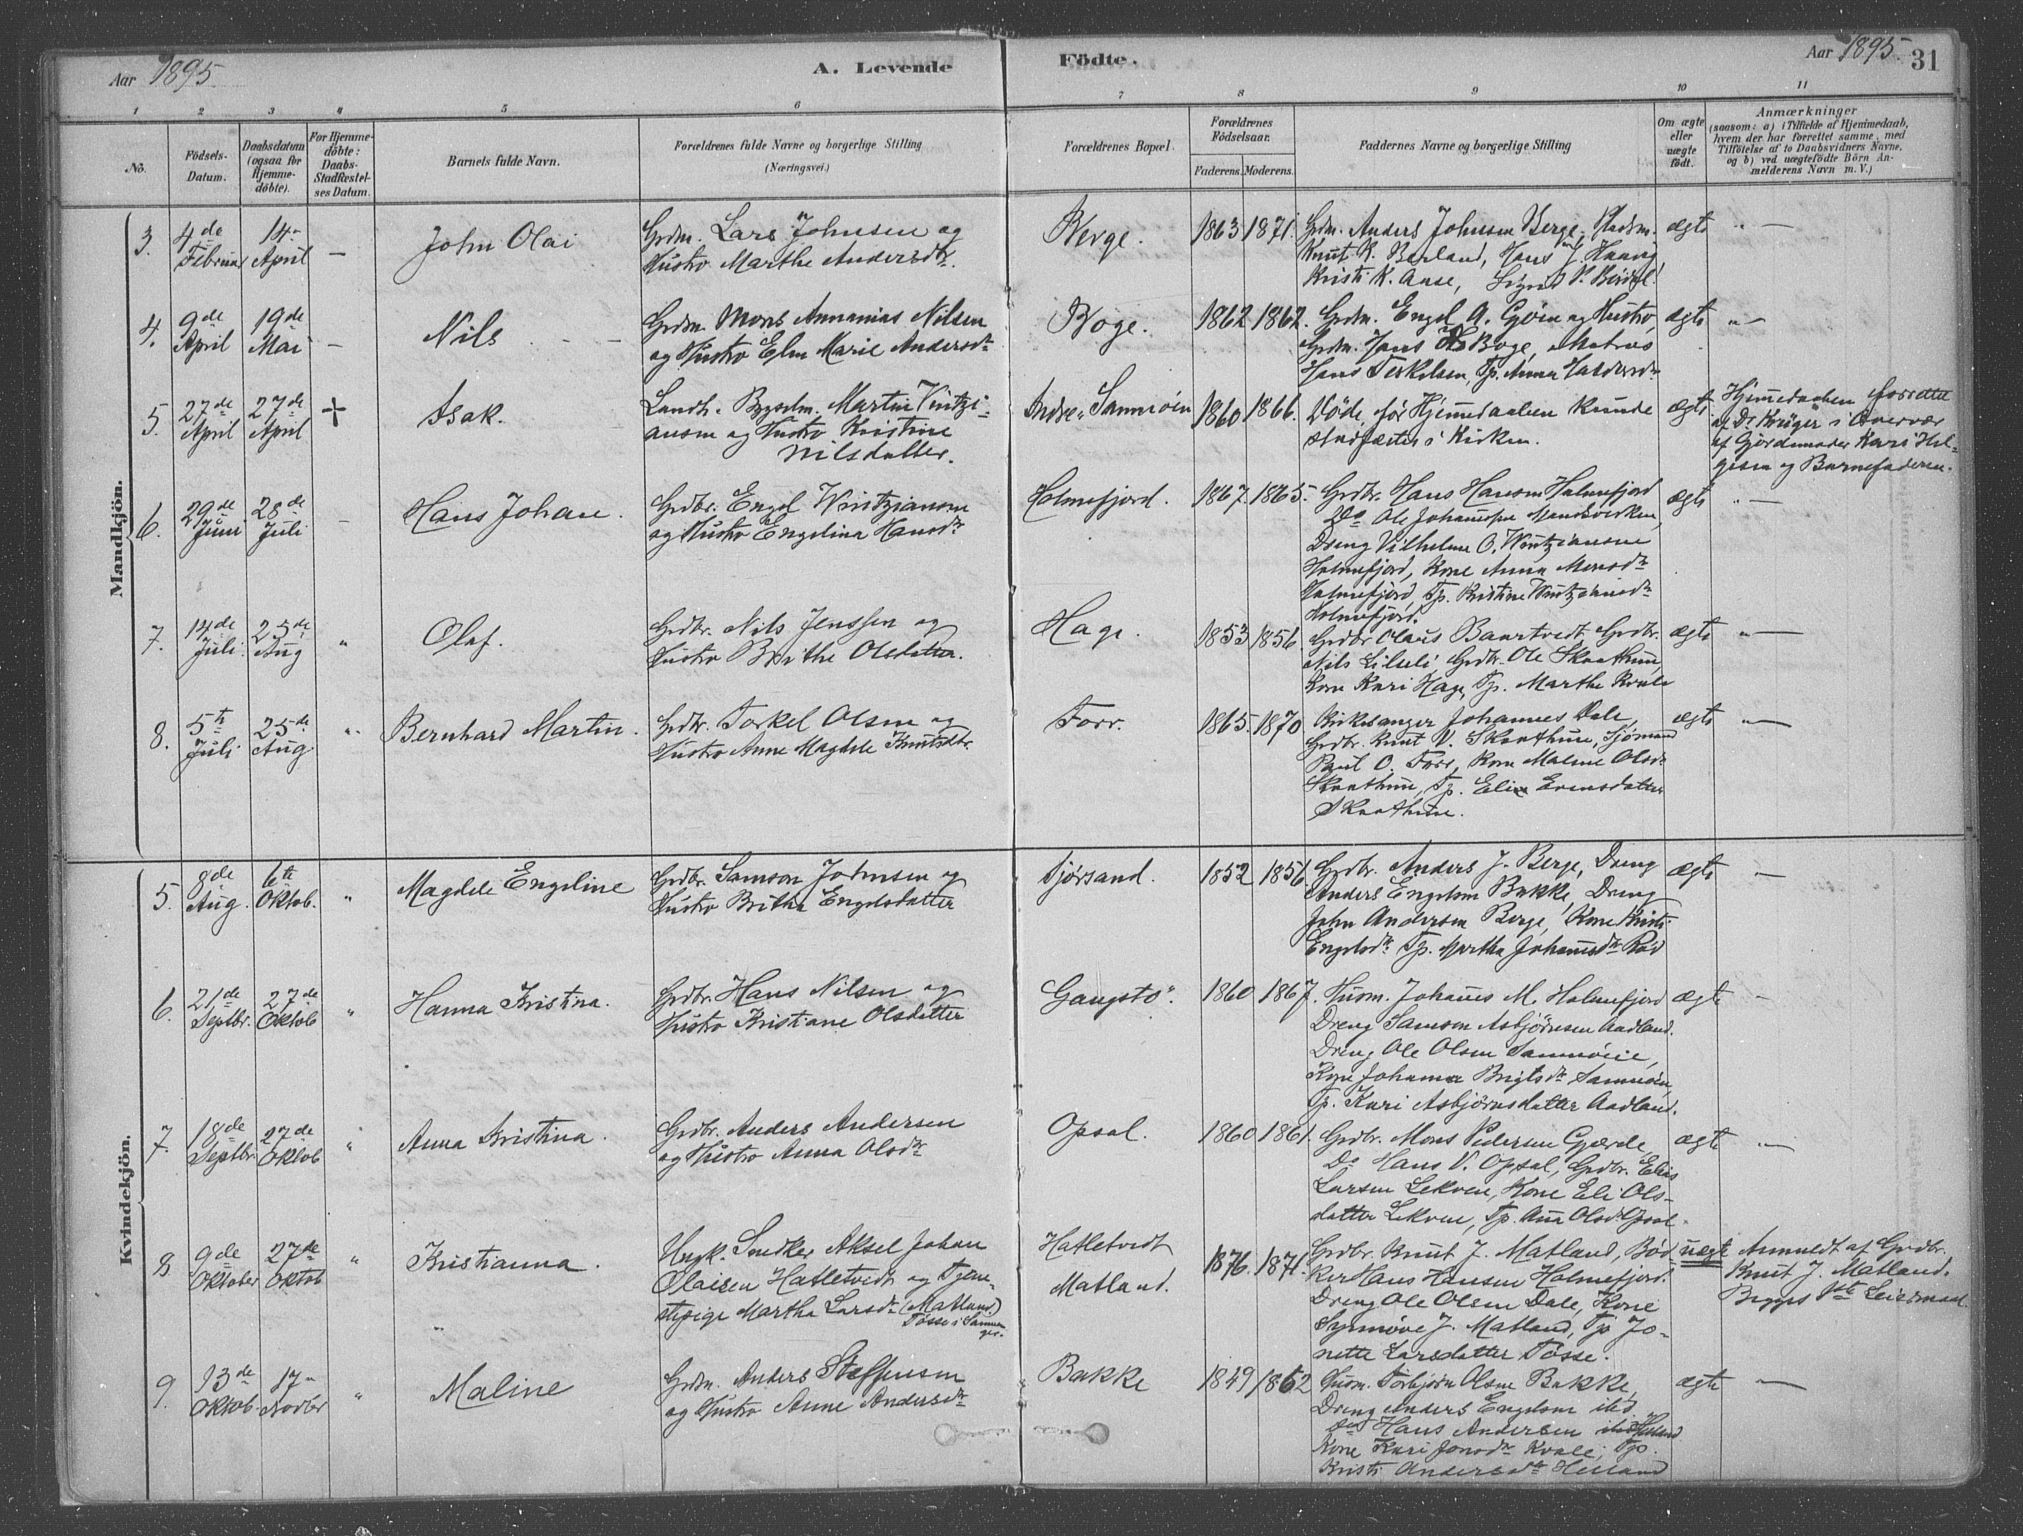 Aar 1895.
A. Levende
Födte.
Aar 1895.
31
1 2 3 4 5 6 7 8 9 10 11
No.
Födsels-
Datum.
Daabsdatum
(ogsaa for
Hjemme-
döbte).
For Hjemme-
döbte:
Daabs-
Stadfæstel-
ses Datum.
Barnets fulde Navn.
Forældrenes fulde Navne og borgerlige Stilling
(Næringsvei.)
Forældrenes Bopæl.
Forældrenes
Födselsaar.
Faderens. Moderens.
Faddernes Navne og borgerlige Stilling
Om ægte
eller
uægte
født.
Anmærkninger
(saasom: a) i Tilfælde af Hjemmedaab,
hvem der har forrettet samme, med
Tilföielse af to Daabsvidners Navne,
og b) ved uægtefödte Börn An-
melderens Navn m. V.)
Mandkjön.
3.
4de
Februar
14-
April
—
John Olai
Grdm. Lars Johnsen og
Hustro Marthe Andersdtr.
Berge.
1863 1871.
Grdm. Anders Johnsen Berge,
Knut K. Berland, Hans J. Haavig,
Kristi K. Aase,
ægte
" —
4.
9de
April
19de
Mai
—
Nils
Grdm. Mons Annanias Nilsen
og Hustro Elen Marie Andersdtr
Boge.
1862 1862.
Grdm. Engel A. Gjöen og Hustro,
Grdm. Jans H. Boge, Matros
Hans Terkelsen, Tp. Anna Haldorsdtr
ægte
" —
5.
27de
April
27de
April
+
Isak.
Landh. Bygselm. Martin Vintzi-
ansen og Hustro Kristine
Nilsdatter.
Indre Samnöen
1860 1866.
Döde, för Hjemmedaaben kunde
stadfæstes i Kirken.
ægte
Hjemmedaaben forrettet
af Dr Krüger i Overvær
af Gjordemoder Kari Hel-
gesen og Barnefaderen.
6.
29de
Juni
28de
Juli
—
Hans Johan.
Grdbr. Engel Wintzianson
og Hustro Engelina Hansdtr
Holmefjord.
1867. 1865.
Grdbr. Hans Hansen Holmefjord
Do Ole Johannesen
Dreng Vilhelm O. Wintziansen
Holmefjord, Kone Anna Monsdtr
Holmefjord, Tp. Kristine Wintziansdtr
Holmefjord.
ægte
" —
7.
14de
Juli
25de
Aug
"
Olaf.
Grdbr. Nils Jenssen og
Hustro Brithe Olsdatter.
Hage.
1853 1856.
Grdbr Olais Baartvedt Grdbr.
Nils Lilseli, Grdbr. Ole Skaathun,
Kone Kari Hage, Tp. Marthe Kvale
ægte
" —
8.
5te
Juli
25de
Aug
"
Bernhard Martin.
Grdbr. Torkel Olsen og
Hustro Anne Magdele Knutsdtr.
Forr.
1865. 1870
Kirkesanger Johannes Dale,
Grdbr. Knut V. Skaathun, Sjömand
Paul O. Forr, Kone Maline Olsdr
Skaathun, Tp. Eline Evensdatter
Skaathun.
ægte
" —
Kvindekjön.
5.
8de
Aug.
6te
Oktob.
"
Magdele Engeline
Grdbr. Samson Johnsen og
Hustro Britha Engelsdatter
Tjörsand.
1852 1856
Grdbr. Anders J. Berge, Dreng
Anders Engelsen Bakke, Dreng
John Andersen Berge, Kone Kristi
Engelsdtr. Tp. Martha Johannesdtr Röd
ægte
—
6.
21de
Septbr.
27de
Oktob
"
Hanna Kristina.
Grdbr. Hans Nilsen og
Hustro Kristiane Olsdatter
Gangstö.
1860 1867.
Husm. Johannes M. Holmefjord
Dreng Samson Asbjörnsen Aadland.
Dreng Ole Olsen Samnöen,
Kone Johanna Brigtsdtr Samnöen,
Tp. Kari Asbjörnsdatter Aadland.
ægte
—
7.
18de
Septbr.
27de
Oktob
"
Anna Kristina.
Grdbr. Anders Andersen
og Hustro Anna Olsdtr
Opsal.
1860 1861.
Grdbr. Mons Pedersen Gjærde,
Do Hans V. Opsal, Grdbr. Elias
Larsen Lekven, Kone Eli Ols-
datter Lekven, Tp. Ana Olsdtr Opsal.
ægte
—
8
9de
Oktober
27de
Oktob
"
Kristianna.
Ungk. Snedker Aksel Johan
Olaisen Hatletvedt og Tjene-
stepige Martha Larsdtr (Matland.)
Tösse i Samnan-
ger.
Hatletvedt
Matland.
1876. 1871.
Grdbr. Knut J. Matland, Böd-
ker Hans Hansen Holmefjord.
Dreng Ole Olsen Dale, Kone
Synnöve J. Matland, Tp. Jo-
nette Larsdatter Tösse.
uægte
Anmeldt af Grdbr.
Knut J. Matland.
Begges 1ste Leiermaal.
9.
13de
Oktob.
17-
Novbr
"
Maline
Grdm. Anders Steffensen
og Hustro Anne Andersdtr
Bakke
1849 1862
Husm. Torbjörn Olsen Bakke,
Dreng Anders Engelsen ibid
do Hans Andersen
Kone Kari Jonsdtr Kvale, Tp.
Kristi Andersdtr Heiland
ægte
—